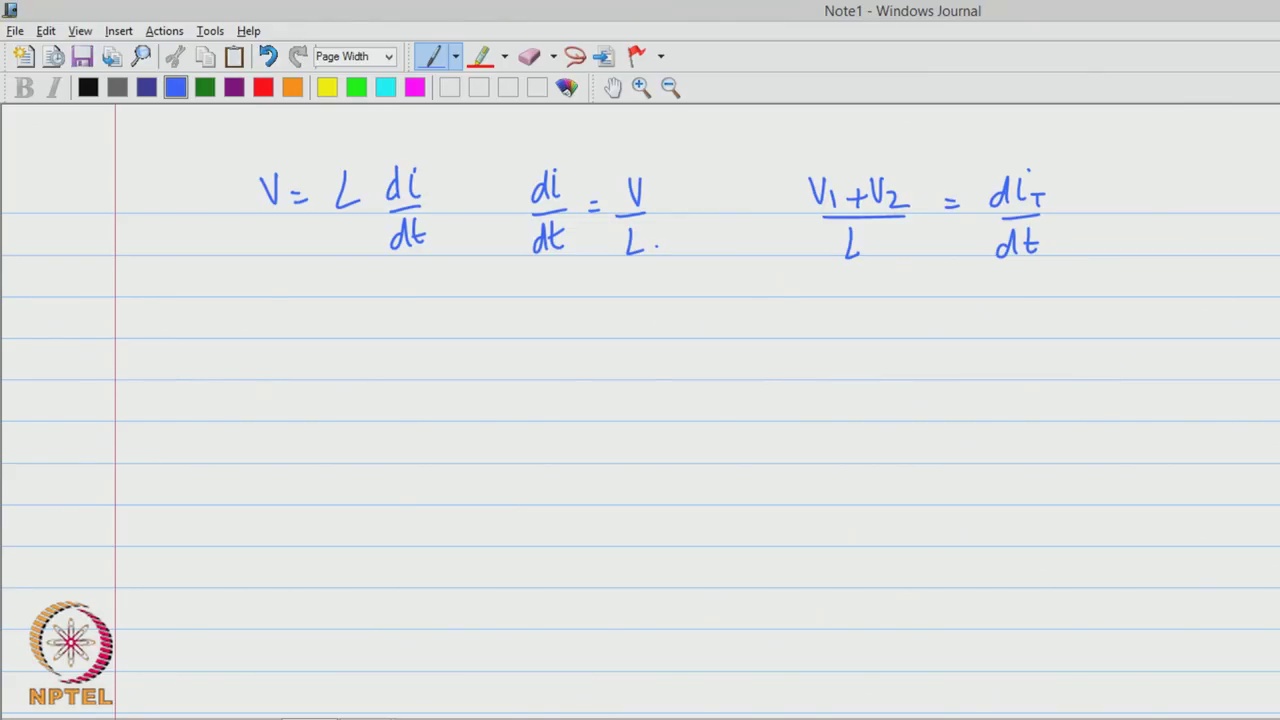 Note1 - Windows Journal
File Edit View Insert Actions Tools Help
Page Width
B I
V = L di/dt di/dt = V/L. V1+V2/L = diT/dt
NPTEL